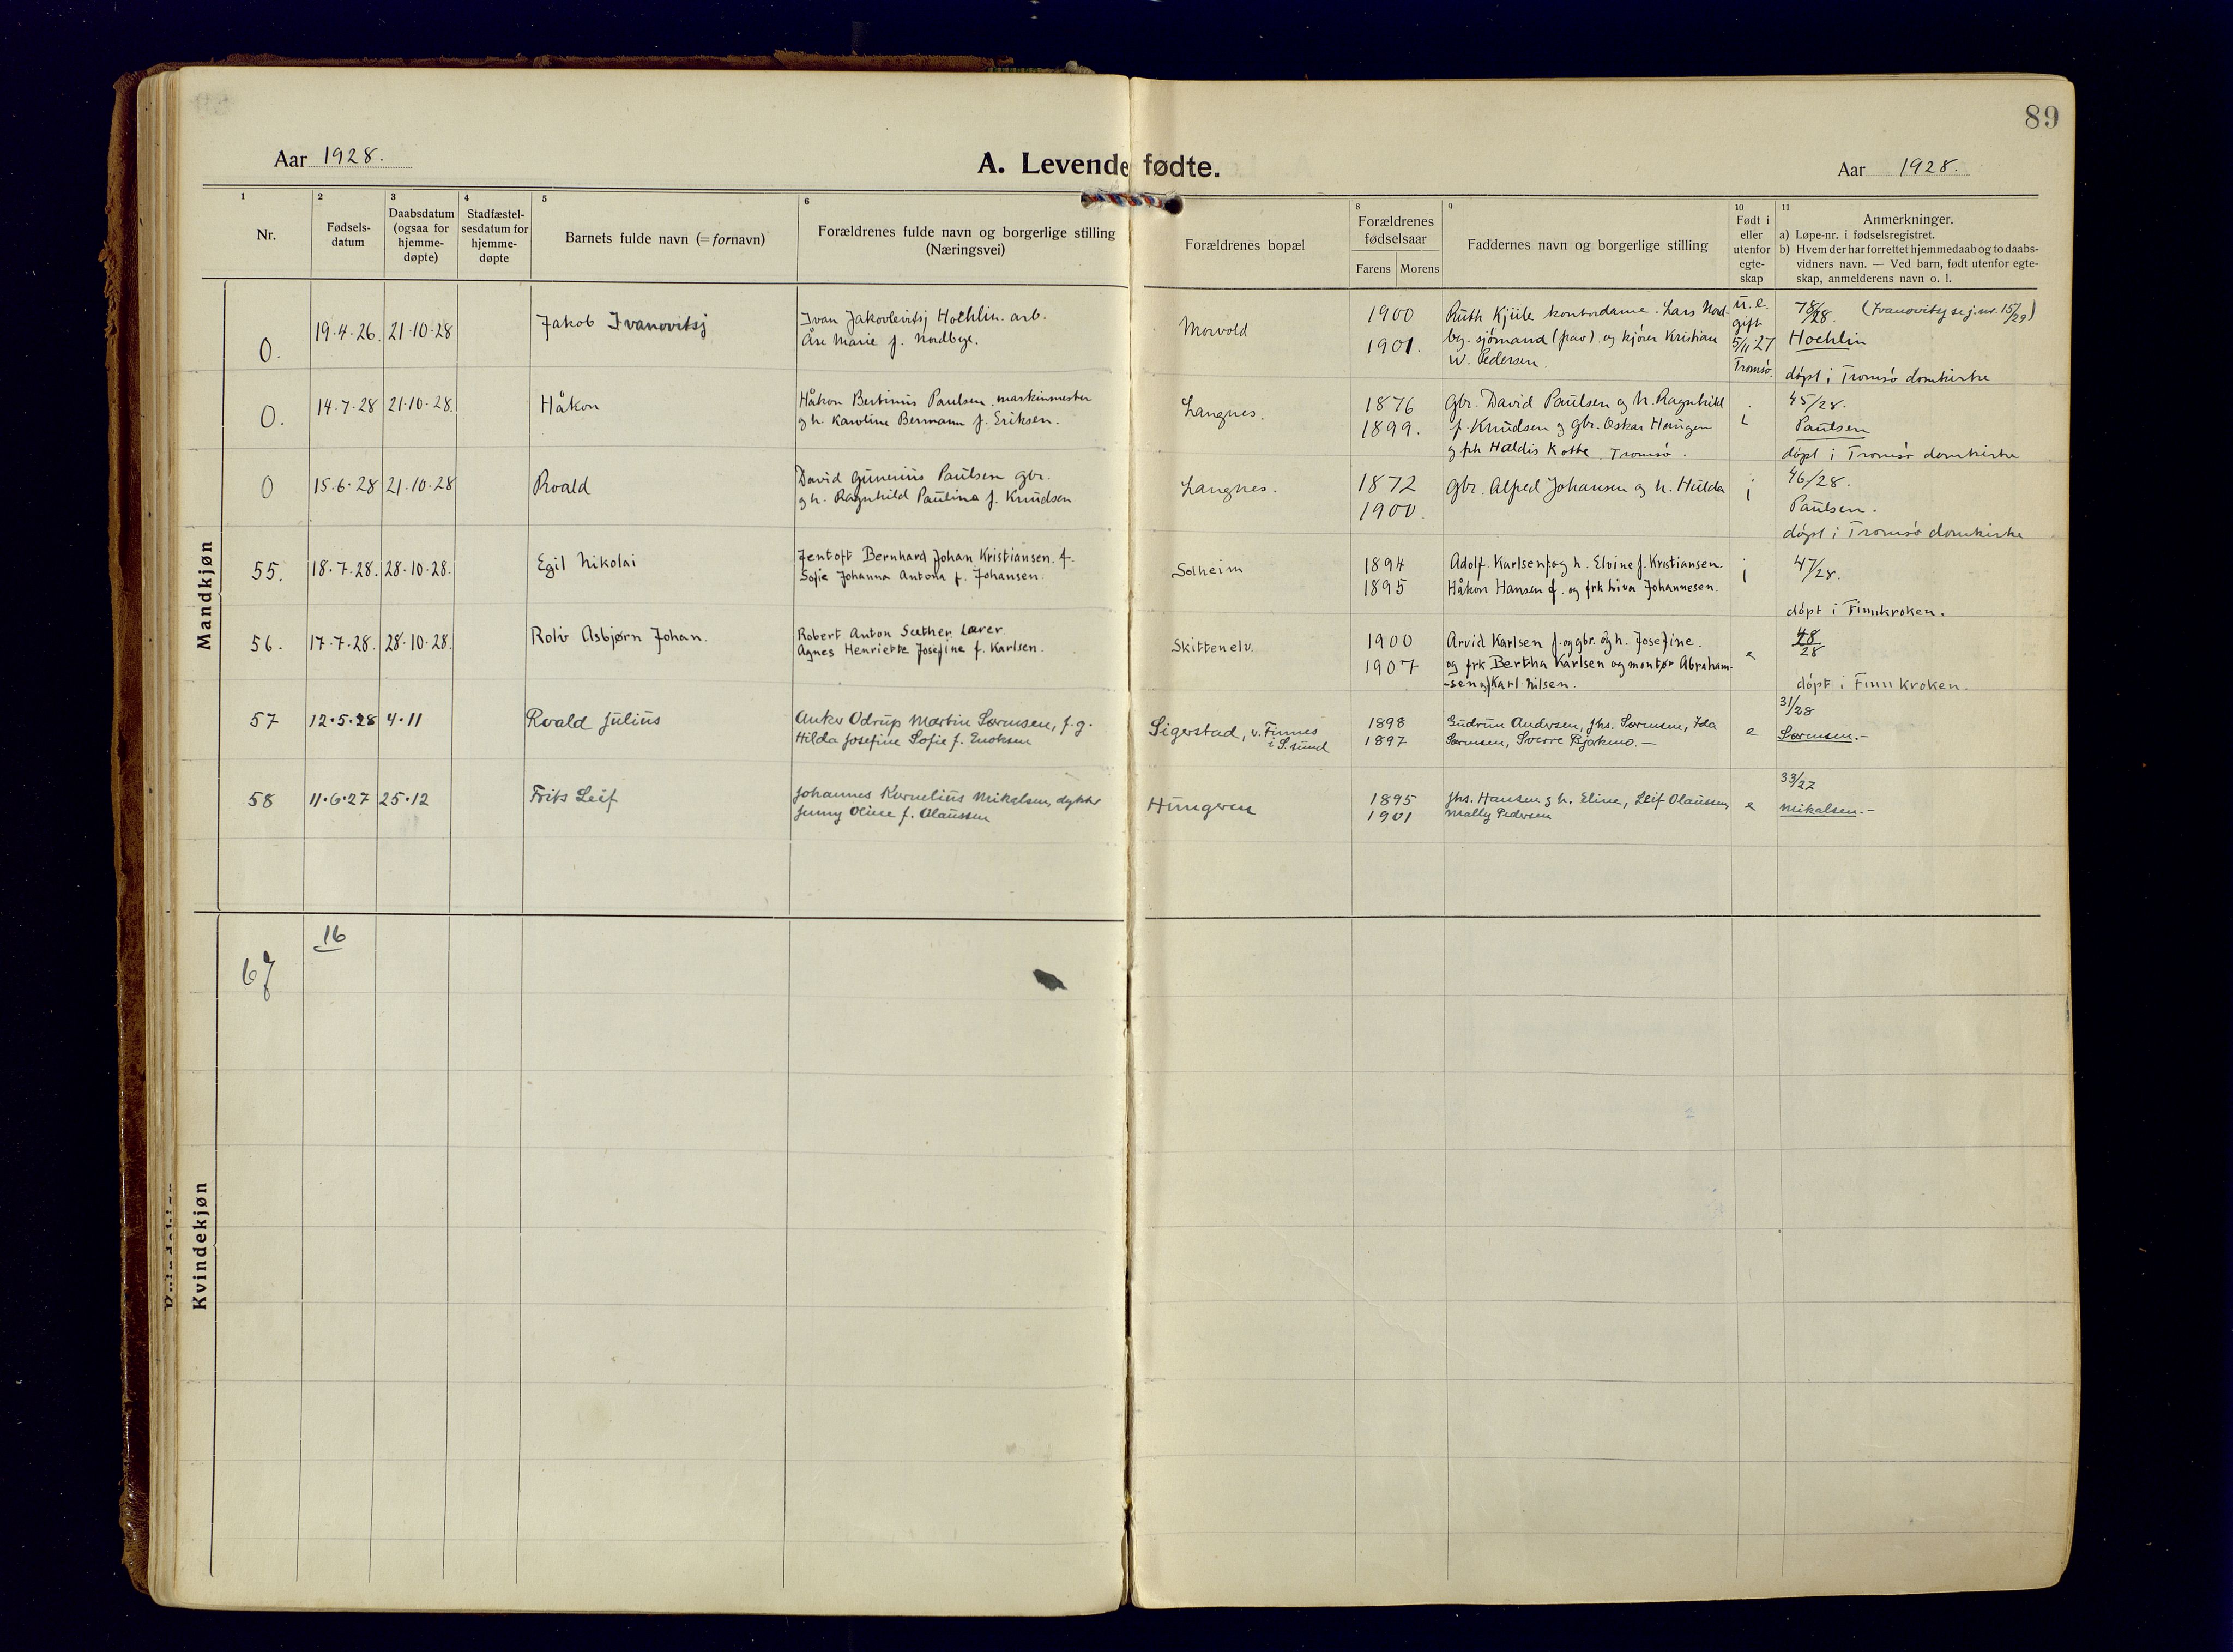 89
Aar 1928.
A. Levende fødte.
Aar 1928.
1
Nr.
2
Fødsels-
datum
3
Daabsdatum
(ogsaa for
hjemme-
døpte)
4
Stadfæstel-
sesdatum for
hjemme-
døpte
5
Barnets fulde navn (= fornavn)
6
Forældrenes fulde navn og borgerlige stilling
(Næringsvei)
Forældrenes bopæl
8
Forældrenes
fødselsaar
Farens Morens
9
Faddernes navn og borgerlige stilling
10
Født i
eller
utenfor
egte-
skap
11
Anmerkninger.
a) Løpe-nr. i fødselsregistret.
b) Hvem der har forrettet hjemmedaab og to daabs-
vidners navn. — Ved barn, født utenfor egte-
skap, anmelderens navn o. l.
Mandkjøn
0.
19.4.26. 21.10.28
Jakob Ivanovitsj
Ivan Jakovlevitsj Hoehlin. arb.
Åse Marie f. Nordbye.
Morvold
1900
1901.
Ruth Kjiile kontordame. Lars Nord-
by. sjømand (pav) og kjører Kristian
W. Pedersen.
u.e.
gift
5/11 27
Tromsø.
78/28. (Ivanovitsj se j. nr. 15/29)
Hoehlin
døpt i Tromsø domkirke
0.
14.7.28 21.10.28.
Håkon
Håkon Bertinius Paulsen. maskinmester
og h. Karoline Bermann f. Eriksen.
Langnes.
1876
1899.
Gbr. David Paulsen og h. Ragnhild
f. Knudsen og gbr. Oskar Haugen
og frk Haldis Kotte. Tromsø.
i
45/28.
Paulsen
døpt i Tromsø domkirke
0
15.6.28 21.10.28
Roald
David Gunerius Paulsen gbr.
og h. Ragnhild Paulina f. Knudsen
Langnes.
1872
1900.
Gbr. Alfred Johansen og h. Hulda
i
46/28.
Paulsen.
døpt i Tromsø domkirke
55.
18.7.28. 28.10.28.
Egil Nikolai
Jentoft Bernhard Johan Kristiansen. f.
Sofie Johanna Antona f. Johansen.
Solheim
1894
1895
Adolf Karlsen f. og h. Elvine f. Kristiansen.
Håkon Hansen f. og frk Liva Johannesen.
i
47/28.
døpt i Finnkroken.
56.
17.7.28. 28.10.28.
Rolv Asbjørn Johan.
Robert Anton Sæther. Lærer
Agnes Henriette Josefine f. Karlsen.
Skittenelv.
1900
1907
Arvid Karlsen f. og gbr. og h. Josefine.
og frk Bertha Karlsen og montør Abraham-
-sen og Karl Nilsen.
e
48/28
døpt i Finnkroken.
57
12.5.28 4.11
Roald Julius
Anker Odrup Martin Sørensen, f.g.
Hilda Josefine Sofie f. Enoksen
Sigerstad, v. Finnes
i S.sund
1898
1897
Gudrun Andersen, Jhs. Sørensen, Ida
Sørensen, Sverre Bjørkmo. —
e
31/28
Sørensen. -
58
11.6.27 25.12
Frits Leif
Johannes Kornelius Mikalsen, dykker
Jenny Oline f. Olaussen
Hungeren
1895
1901
Jhs. Hansen og h. Eline, Leif Olaussen,
Mally Pedersen
e
33/27
Mikalsen. -
Kvindekjøn
16
67